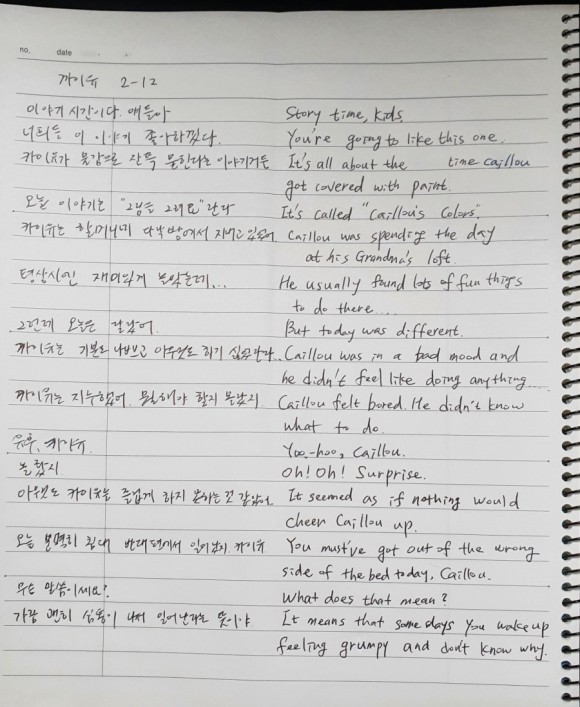 no.    date
까이유 2-12
이야기 시간이다. 얘들아    Story time, kids.
너희들 이 이야기 좋아하겠다.    You're going to like this one.
카이유가 물감으로 잔뜩 물든다는 이야기거든    It's all about the    time caillou
got covered with paint.
오늘 이야기는 "그림을 그려요"란다    It's called "Caillou's Colors".
카이유는 할머니네 다락방에서 지내고 있었어.    Caillou was spending the day
at his Grandma's loft.
평상시엔 재미있게 놀았는데...    He usually found lots of fun things
to do there....
그런데 오늘은 달랐어.    But today was different.
까이유는 기분도 나쁘고 아무것도 하기 싫었단다.    Caillou was in a bad mood and
he didn't feel like doing anything...
카이유는 지루했어. 뭘해야 할지 몰랐지    Caillou felt bored. He didn't know
what to do.
유후, 카이유.    Yoo-hoo, Caillou.
놀랐지    Oh! Oh! Surprise.
아무것도 카이유를 즐겁게 하지 못하는 것 같았어.    It seemed as if nothing would
cheer Caillou up.
오늘 분명히 침대 반대편에서 일어났지 카이유    You must've got out of the wrong
side of the bed today, Caillou.
무슨 말씀이세요?    What does that mean?
가끔 괜히 심술이 나서 일어난다는 뜻이야    It means that some days you wake up
feeling grumpy and don't know why.